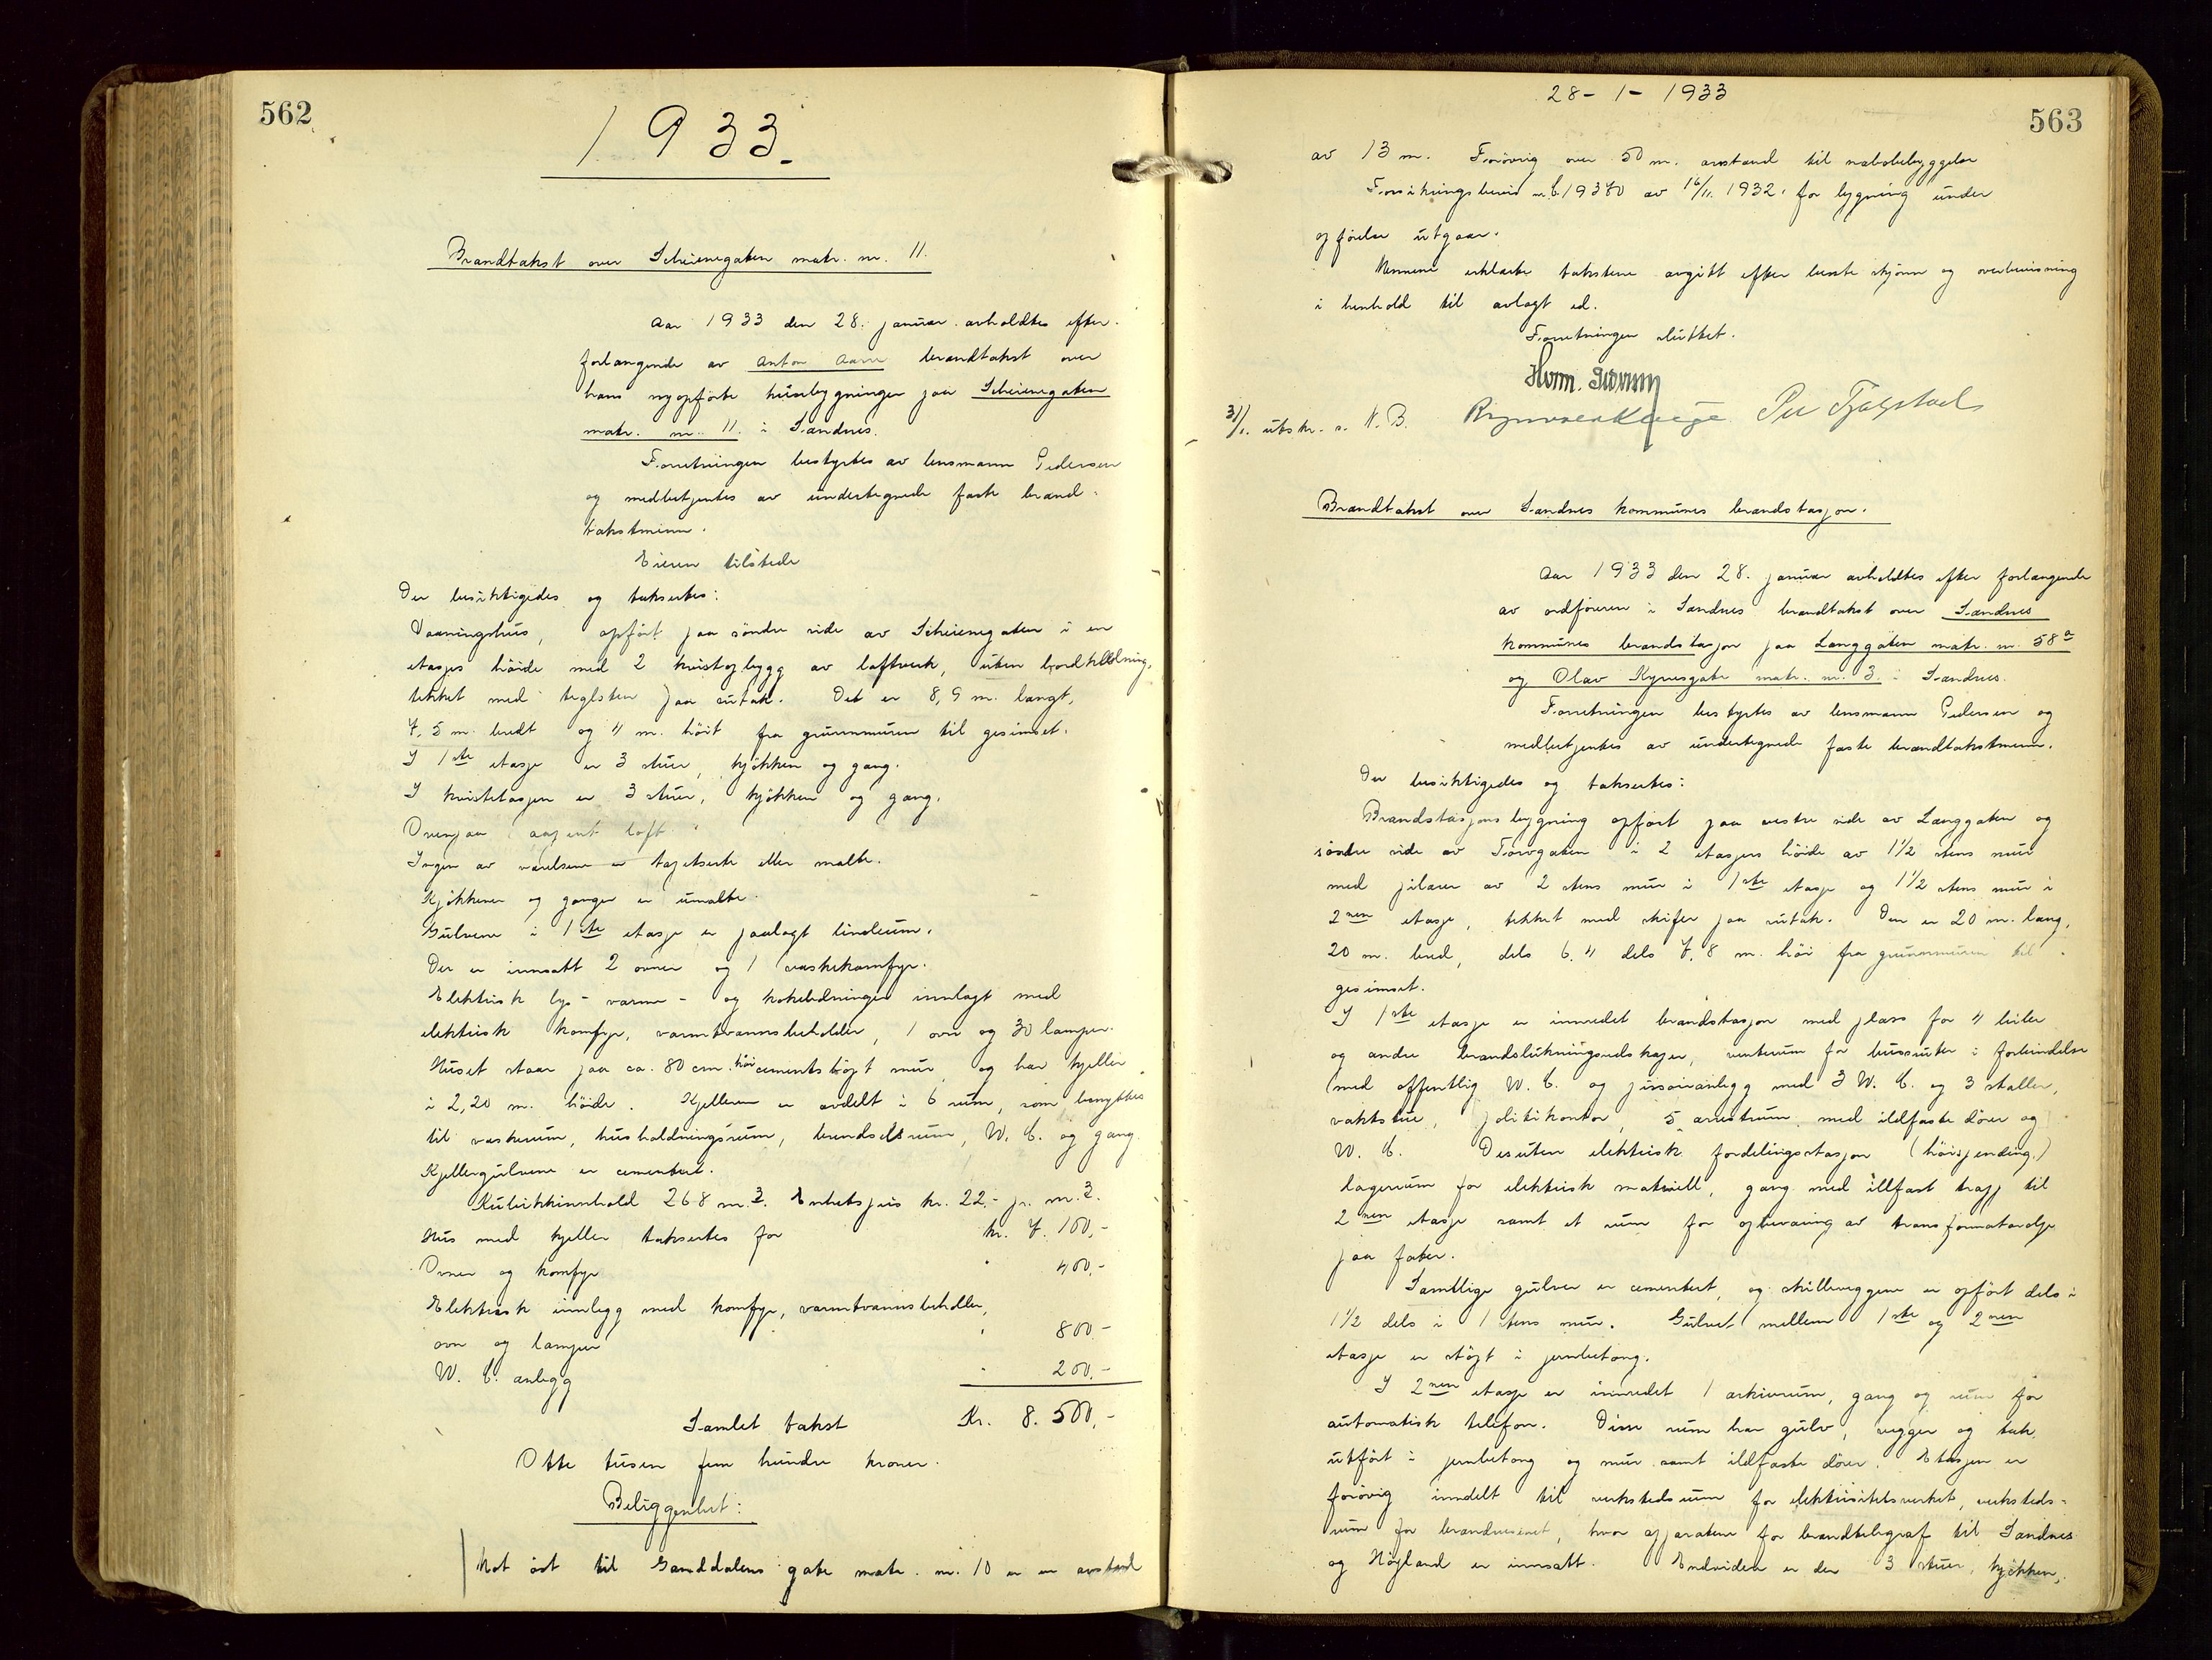 562
1933.
Brandtakst over Scheienegaten matr. nr. 11.
Aar 1933 den 28. januar avholdtes efter
forlangende av Anton Aase brandtakst over
hans nyopførte husbygninger paa Scheienegaten
matr. nr. 11. i Sandnes.
Forretningen bestyrtes av lensmann Pedersen
og medbetjentes av undertegnede faste brand-
takstmenn.
Eieren tilstede
Der besiktigedes og taksertes:
Vaaningshus, opført paa søndre side av Scheienegaten i en
etasjes høide med 2 kvistoplegg av laftverk, uten bordklædning,
tekket med teglsten paa sutak. Det er 8,9 m. langt,
7,5 m. bredt og 4 m. høit fra grunnmuren til gesimset.
I 1ste etasje er 3 stuer, kjøkken og gang.
I kvistetasjen er 3 stuer, kjøkken og gang.
Ovenpaa aapent loft.
Ingen av værelsene er tapetserte eller malte.
Kjøkkener og ganger er umalte.
Gulvene i 1ste etasje er paalagt linoleum.
Der er innsatt 2 ovner og 1 vaskekomfyr.
Elektrisk lys- varme- og kokeledninger innlagt med
elektrisk komfyr, varmtvannsbeholder, 1 ovn og 30 lamper.
Huset staar paa ca. 80 cm. høi cementstøpt mur, og har kjeller
i 2,20 m. høide. Kjelleren er avdelt i 6 rum, som benyttes
til vaskerum, husholdningsrum, brendselsrum, W. C. og gang.
Kjellergulvene er cementert.
Kubikkinnhold 268 m.3. Enhetspris kr. 22,- pr. m.3.
Hus med kjeller taksertes for kr. 7.100,-
Ovner og komfyr " 400,-
Elektrisk innlegg med komfyr, varmtvannsbeholder,
ovn og lamper " 800,-
W. C. anlegg " 200,-
Samlet takst Kr. 8.500,-
Otte tusen fem hundre kroner.
Beliggenhet:
Mot øst til Ganddalens gate matr. nr. 10 er en avstand
28-1-1933
563
av 13 m. Forøvrig over 50 m. avstand til nabobebyggelse
Forsikringsbevis nr. C19370 av 16/11. 1932. for bygning under
opførelse utgaar.
Mennene erklærte taksten avgitt efter beste skjønn og overbevisning
i henhold til avlagt ed.
Forretningen sluttet.
31/1. utskr. s. N. B.
Brandtakst over Sandnes kommunes brandstasjon.
Aar 1933 den 28. januar avholdtes efter forlangende
av ordføreren i Sandnes brandtakst over Sandnes
kommunes brandstasjon paa Langgaten matr. nr. 58a
og Olav Kyrresgate matr. nr. 3. i Sandnes.
Forretningen bestyrtes av lensmann Pedersen og
medbetjentes av undertegnede faste brandtakstmenn.
Der besiktigedes og taksertes:
Brandstasjonsbygning opført paa vestre side av Langgaten og
søndre side av Torvgaten i 2 etasjers høide av 1½ stens mur
med pilarer av 2 stens mur i 1ste etasje og 1½ stens mur i
2nen etasje, tekket med skifer paa sutak. Den er 20 m. lang,
20 m. bred, dels 6,4 dels 7,8 m. høi fra grunnmuren til
gesimset.
I 1ste etasje er innredet brandstasjon med plass for 4 biler
og andre brandslukningsredskaper, venterum for bussruter i forbindelse
med offentlig W. C. og pissoiranlegg med 3 W. C. og 3 staller,
vaktstue, politikontor, 5 arrestrum med ildfaste dører og
W. C. Desuten elektrisk fordelingsstasjon (høispending)
lagerrum for elektrisk materiell, gang med illfast trapp til
2nen etasje samt et rum for opbevaring av transformatorolje
paa fater.
Samtlige gulver er cementert, og skilleveggene er opført dels i
1½ dels i 1 stens mur. Gulvet mellem 1ste og 2nen
etasje er støpt i jernbetong.
I 2nen etasje er innredet 1 arkivrum, gang og rum for
automatisk telefon. Disse rum har gulv, vegger og tak
utført i jernbetong og mur samt ildfaste dører. Etasjen er
forøvrig inndelt til verkstedsrum for elektrisitetsverket, verksteds-
rum for brandvesenet, hvor apparatene for brandtelegraf til Sandnes
og Høyland er innsatt. Endvidere er der 3 stuer, kjøkken,